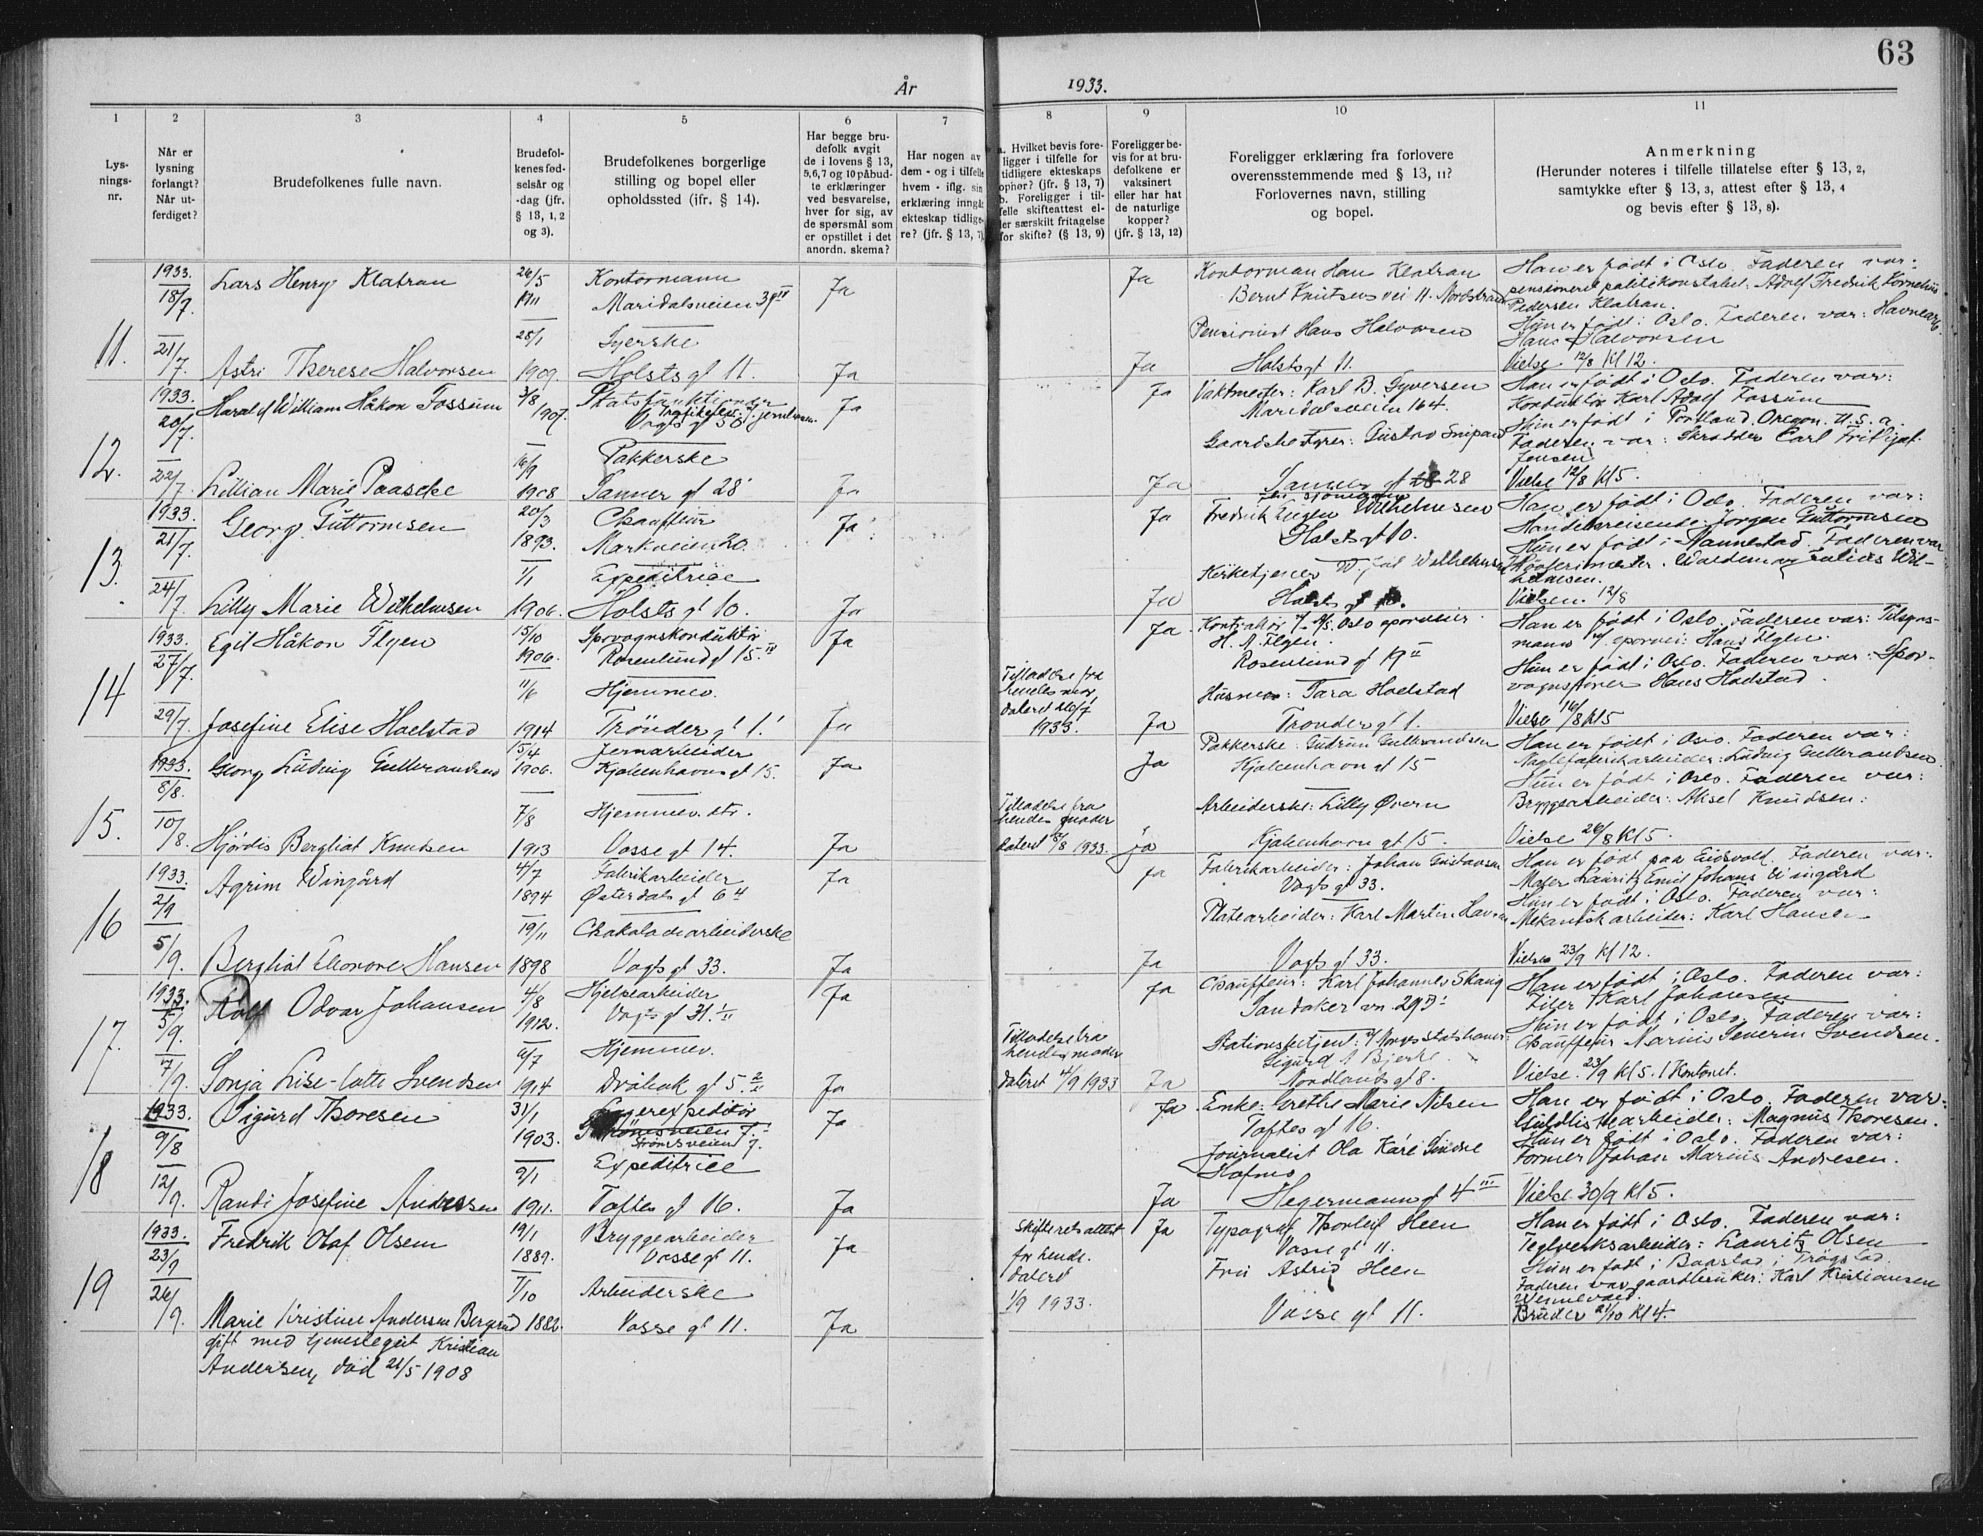 63
År 1933.
1
2
3
4
5
6
7
8
9
10
11
Lys-
nings-
nr.
Når er
lysning
forlangt?
Når ut-
ferdiget?
Brudefolkenes fulle navn.
Brudefol-
kenes fød-
selsår og
-dag (jfr.
§ 13, 1, 2
og 3).
Brudefolkenes borgerlige
stilling og bopel eller
opholdssted (jfr. § 14).
Har begge bru-
defolk avgit
de i lovens § 13,
5, 6, 7 og 10 påbud-
te erklæringer
ved besvarelse,
hver for sig, av
de spørsmål som
er opstillet i det
anordn. skema?
Har nogen av
dem - og i tilfelle
hvem - iflg. sin
erklæring inngåt
ekteskap tidlige-
re? (jfr. § 13, 7)
a. Hvilket bevis fore-
ligger i tilfelle for
tidligere ekteskaps
ophør? (jfr. § 13, 7)
b. Foreligger i til-
felle skifteattest el-
ler særskilt fritagelse
for skifte? (§ 13, 9)
Foreligger be-
vis for at bru-
defolkene er
vaksinert
eller har hat
de naturlige
kopper?
(jfr. § 13, 12)
Foreligger erklæring fra forlovere
overensstemmende med § 13, 11?
Forlovernes navn, stilling
og bopel.
Anmerkning
(Herunder noteres i tilfelle tillatelse efter § 13, 2,
samtykke efter § 13, 3, attest efter § 13, 4
og bevis efter § 13, 8).
11.
1933.
18/7.
21/7.
Lars Henry Klatran
26/5
1911
Kontormann
Maridalsveien 39 IV
Ja
Ja
Kontorman Han Klatran
Bernt Knutsens vei 11. Nordstrand
Han er født i Oslo. Faderen var:
pensioneret politikonstabel. Adolf Fredrik Kornelius
Pedersen Klatran.
Astri Therese Halvorsen
28/1
1909.
Syerske
Holsts gt 11.
Ja
Ja
Pensionist Hans Halvorsen
Holsts gt 11.
Hun er født i Oslo. Faderen var: Havnearb.
Hans Halvorsen
Vielse 12/8 Kl 12.
12.
1933.
20/7.
22/7.
Harald William Håkon Fossum
3/8
1907.
Statsfunktionær
Vogts gt 50
Ja
Ja
Vaktmester: Karl B. Syversen
Maridalsveien 164.
Han er født i Oslo. Faderen var:
Konduktør Karl Adolf Fossum
Lillian Marie Paaske
16/9
1908
Pakkerske
Sanner gt 28
Ja
Ja
Gaardbestyrer: Gustav
Sanner gt 28
Hun er født i Portland. Oregon. U.S.a.
Faderen var: Skrædder Carl Fritjof
Jensen
Vielse 12/8 Kl 5.
13.
1933.
21/7.
24/7.
Georg Guttormsen
20/3
1893.
Chauffeur
Markveien 20.
Ja
Ja
Fredrik Eugen Wilhelmsen
Holsts gt 10.
Han er født i Oslo. Faderen var:
Handelsreisende: Jørgen Guttormsen
Lilly Marie Wilhelmsen
1/1
1906.
Expeditrice
Holsts gt 10.
Ja
Ja
Kirketjener Wilhelmsen
Holsts gt 10.
Hun er født i Mannestad. Faderen var
Waldemar Julius Wil-
helmsen.
Vielsen 12/8
14
1933.
27/7.
29/7.
Egil Håkon Flyen
15/10
1906.
Sporvognskonduktør
Rosenlund gt 15. IV
Ja
Ja
Kontrolør v/ A/S. Oslo sporveier
H. A. Flyen
Rosenlund gt 19 II
Han er født i Oslo. Faderen var: Tilsyns-
mann v/ sporvei: Hans Flyen.
Josefine Elise Hoelstad
11/6
1914
Hjemmev.
Trønder gt 1.
Ja
Tilladelse fra
hendes mor
dateret 26/7
1933.
Ja
Husmor: Tara Hoelstad
Trønder gt 1.
Hun er født i Oslo. Faderen var: Spor-
vognsfører Hans Hoelstad.
Vielse 16/8 Kl 5
15.
1933.
8/8.
10/8.
Georg Ludvig Gulbrandsen
15/4
1906.
Jernarbeider
Kjøbenhavn gt 15.
Ja
Ja
Pakkerske: Gudrun Gulbrandsen
Kjøbenhavn gt 15
Han er født i Oslo. Faderen var:
Naglefabrikarbeider: Ludvig Gulbrandsen.
Hjørdis Bergliot Knudsen
7/8
1913
Hjemmev. dtr.
Vosse gt 14.
Ja
Tilladelse fra
hendes moder
dateret 8/8 1933.
Ja
Arbeiderske: Lilly Øvern
Kjøbenhavn gt 15.
Hun er født i Oslo. Faderen var:
Bryggearbeider: Aksel Knudsen:
Vielse 26/8 Kl 5.
16
1933.
2/9
5/9.
Agrim Wingård
4/7
1894
Fabrikarbeider
Østerdals gt 6 4
Ja
Ja
Fabrikarbeider: Johan Gustavsen
Vogts gt 33.
Han er født paa Eidsvold. Faderen var:
Maler Lauritz Emil Johans Wingård
Bergliot Elonore Hansen
19/11
1898
Chokoladearbeiderske
Vogts gt 33.
Ja
Ja
Platearbeider: Karl Martin
Vogts gt 33.
Hun er født i Oslo. Faderen var:
Mekanisk arbeider: Karl Hansen
Vielse 23/9 Kl 12.
17.
1933.
5/9.
7/9.
Rolf Odvar Johansen
4/8
1912.
Hjelpearbeider
Vogts gt 31. I/II
Ja
Ja
Chauffeur: Karl Johannes Skaug
Sandaker vn 29
Han er født i Oslo. Faderen var:
Filer Karl Johansen
Sonja Lise-Lotte Svendsen
6/7
1914
Hjemmev.
Drøbak gt 5. 2/II
Ja
Tilladelse fra
hendes moder
dateret 4/9 1933
Ja
Stationsbetjent: v/ Norges Statsbaner:
Sigurd A Bjerke.
Nordlands gt 8.
Hun er født i Oslo. Faderen var:
Chauffeur Marius Severin Svendsen.
Vielse. 23/9 Kl 5. I Kontoret.
18
1933.
9/8
12/9.
Sigurd Thoresen
31/1
1903.
Lagerexpeditør
Strømsveien 7.
Ja
Ja
Enke: Grethe Marie Nilsen
Toftes gt 16.
Han er født i Oslo. Faderen var:
Guldlistearbeider: Magnus Thoresen.
Randi Josefine Andresen
9/1
1911.
Expeditrice
Toftes gt 16.
Ja
Ja
Journalist Ola Kåre
Hofmo
Hegermanns gt 4 III
Hun er født i Oslo. Faderen var:
Former Johan Marius Andresen.
Vielse 30/9 Kl 5.
19
1933.
23/9
26/9.
Fredrik Olaf Olsen
19/1
1889.
Bryggearbeider
Vosse gt 11.
Ja
Ja
Typograf Thorleif Heen
Vosse gt 11.
Han er født i Oslo. Faderen var:
Teglverksarbeider: Lauritz Olsen
Marie Kristine Andersen Bergerud
gift med Kristian
Andersen, død 21/5 1908
7/10
1882.
Arbeiderske
Vosse gt 11.
Ja
Skifteretsattest
for hende.
dateret
1/9 1933.
Fru Astrid Heen
Vosse gt 11.
Hun er født i Baastad i Trøgstad
Faderen var gaardbruker: Karl Kristiansen
Bruder 21/10 Kl 4.